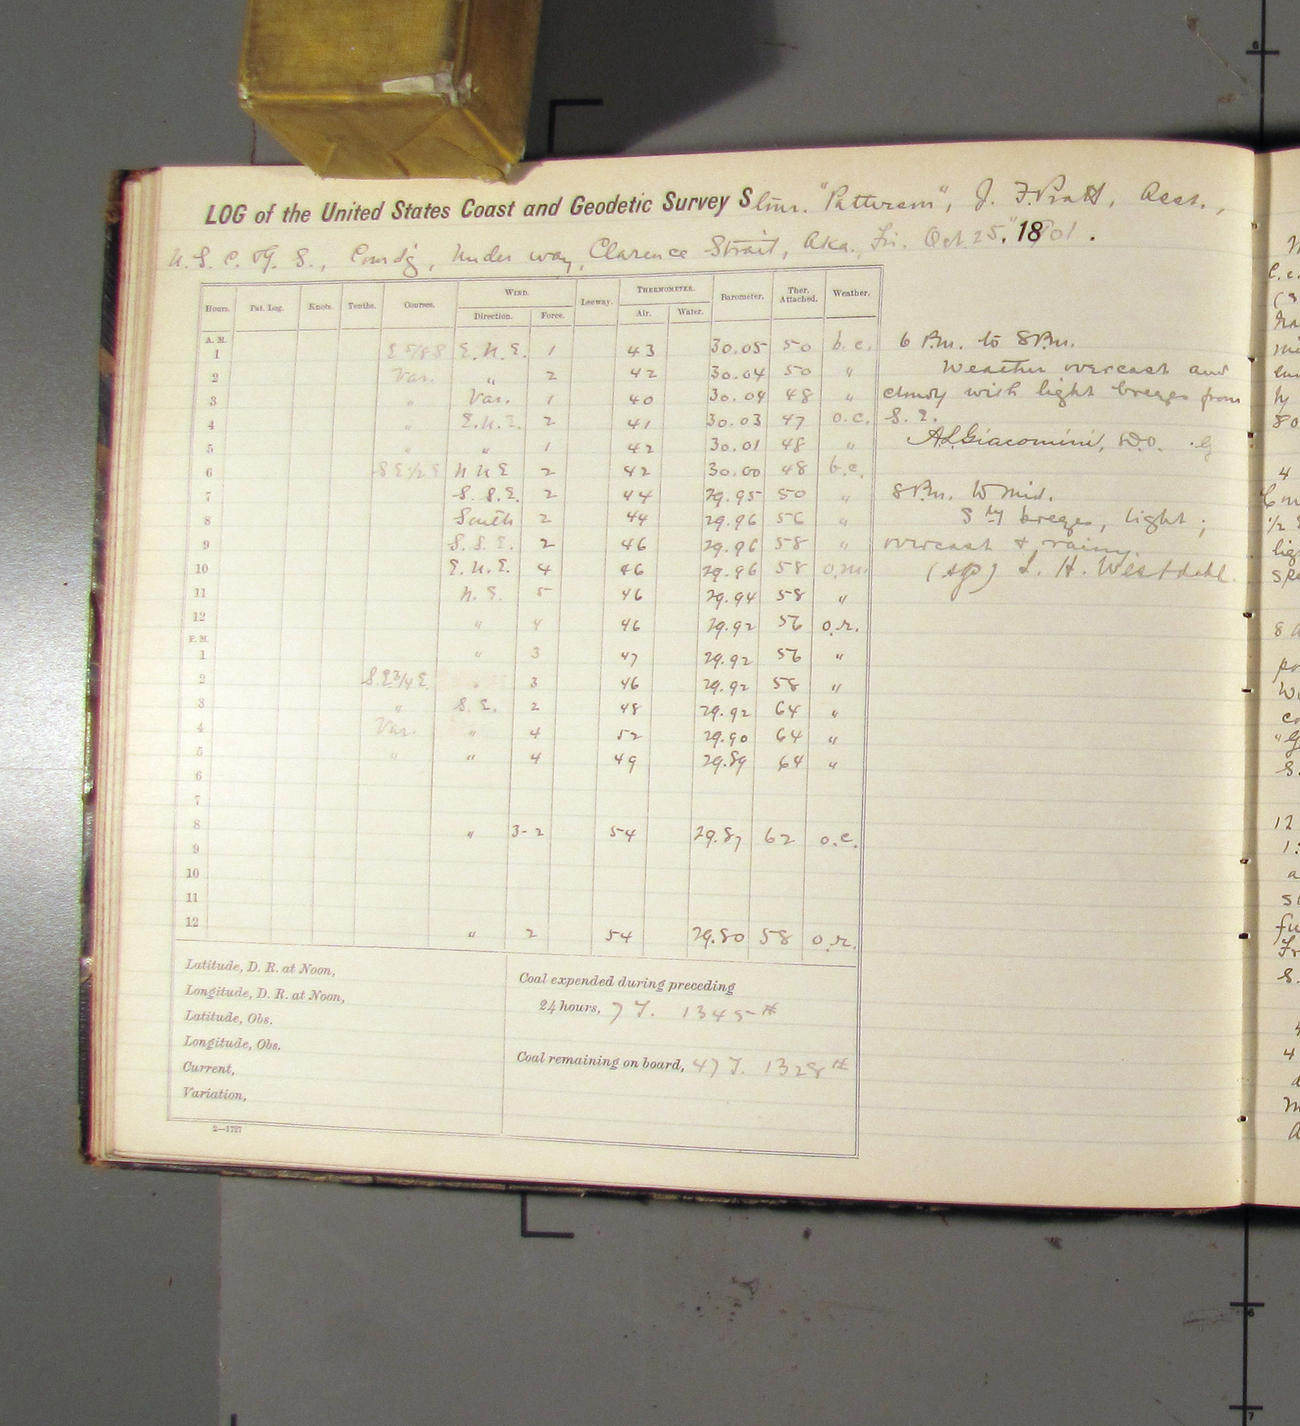 LOG of the United States Coast and Geodetic Survey Stmr. "Patterson", J. F. Pratt, Asst.,
U. S. C. & G. S., Comd'g, Under way, Clarence Strait, Aka., Fri. Oct. 25, 1901.
Hours. Pat. Log. Knots. Tenths. Courses. WIND. Leeway. THERMOMETER. Barometer. Ther. Attached. Weather.
Direction. Force. Air. Water.
A. M.
1 E.N.E. 1 43 30.05 50 b.c.
2 Var. " 2 42 30.04 50 "
3 " Var. 1 40 30.04 48 "
4 " E.N.E. 2 41 30.03 47 o.c.
5 " " 1 42 30.01 48 "
6 S E 1/2 E N N E 2 42 30.00 48 b.c.
7 S. S. E. 2 44 29.95 50 "
8 South 2 44 29.96 56 "
9 S. S. E. 2 46 29.96 58 "
10 E. N. E. 4 46 29.96 58 o.m.
11 N. E. 5 46 29.94 58 "
12 " 4 46 29.92 56 o.r.
P. M.
1 " 3 47 29.92 56 "
2 S.E 3/4 E. " 3 46 29.92 58 "
3 " S. E. 2 48 29.92 64 "
4 Var. " 4 52 29.90 64 "
5 " " 4 49 29.89 64 "
6
7
8 " 3-2 54 29.87 62 o.c.
9
10
11
12 " 2 54 29.80 58 o.r.
Latitude, D. R. at Noon,
Longitude, D. R. at Noon,
Latitude, Obs.
Longitude, Obs.
Current,
Variation,
Coal expended during preceding
24 hours, 7 T. 1345 #
Coal remaining on board, 47 T. 1328 #
2—1727
6 P.m. to 8 P.m.
Weather overcast and
cloudy with light breezes from
S. E.
A. L. Giacomini, W.O.
8 P.m. to Mid.
S'ly breezes, light;
overcast & rainy.
(sg) F. H. Westdahl.